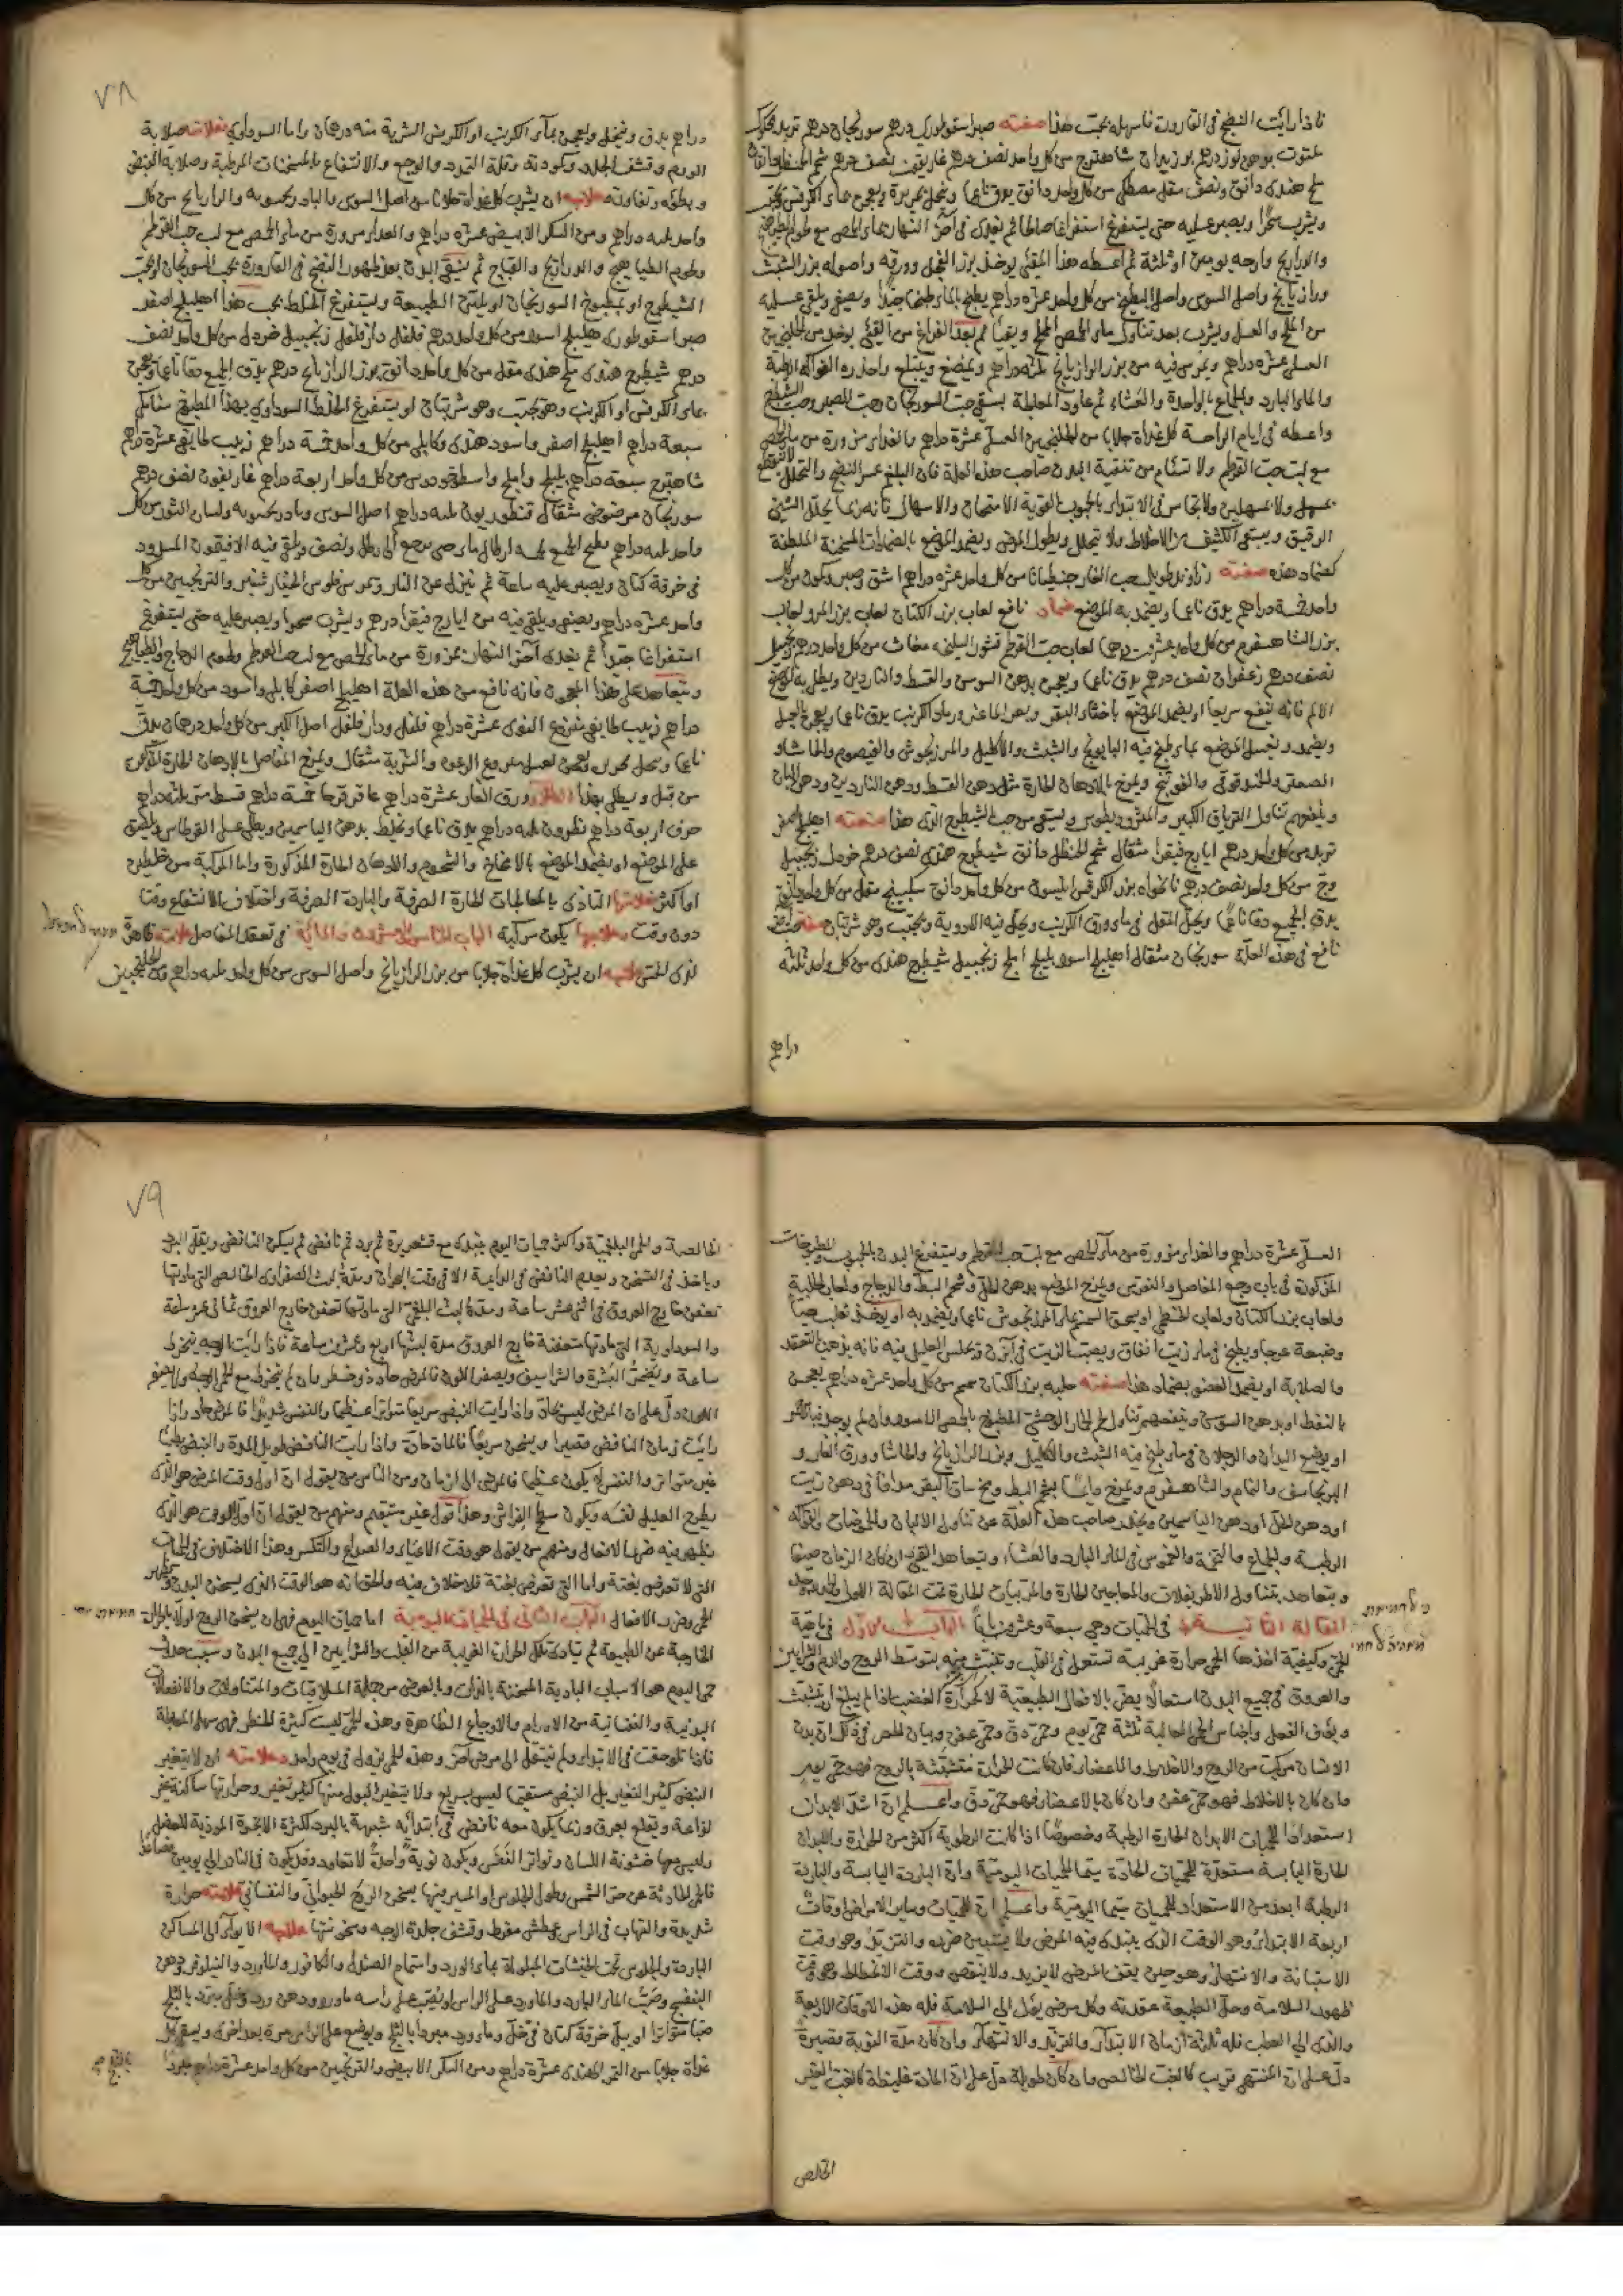 فاذا رأيت النضج في القارورة فاسهله بحب هذا صفته صبر اسقوطري درهم سورنجان درهم تربد محكوك
ملتوت بدهن لوز درهم بوزيدان شاهترج من كل واحد نصف درهم غاريقون نصف درهم شحم الحنظل دانقان
ملح هندي دانق ونصف مقل مصطكي من كل واحد دانق يدق ناعما وينخل بحريرة ويعجن بماء الكرفس ويحبب
ويشرب سحرا ويصبر عليه حتى يستفرغ استفراغا صالحا ثم يغذى في آخر النهار بماء الحمص مع لحوم الطياهيج
والدراريج وارحه يومين او ثلثة ثم اعطه هذا المقيئ يوخذ بزر الفجل وورقه واصوله بزر الشبث
ورازيانج واصل السوس واصل البطيخ من كل واحد عشرة دراهم يطبخ بالماء طبخا جيدا ويصفى ويلقى عليه
من الملح والعسل ويشرب بعد تناول ماء الحمص المملح ويقيأ ثم بعد الفراغ من القيئ يوخذ من الجلنجبين
العسلي عشرة دراهم ويمرس فيه من بزر الرازيانج ثلثة دراهم ويمضغ ويبتلع واحذره الفواكه الرطبة
والماء البارد والجماع بالواحدة والعشاء ثم عاود المحاطبة بسقي حب السورنجان وحب الصبر وحب الشيطرج
واعطه في ايام الراحة كل غداة جلابا من الجلنجبين العسلي عشرة دراهم والغذاء مزورة من ماء الحمص
مع لب حب القرطم ولا تسأم من تنقية البدن صاحب هذه العلة فان البلغم عسر النضج والتحلل لا ينقطع
بمسهل ولا مسهلين ولا تجاسر في الابتداء بالحبوب القوية الامتحان والاسهال فانه ربما يحلل الشيئ
الرقيق ويبقى الكثيف من الاخلاط ولا يتحلل ويطول المرض ويضمد الموضع بالضمادات المسخنة الملطفة
كضماد هذه صفته زراوند طويل حب الغار جنطيانا من كل واحد عشرة دراهم اشق وصبر وكمون من كل
واحد خمسة دراهم يدق ناعما ويضمد به الموضع ضماد نافع لعاب بزر الكتان لعاب بزر المرو لعاب
بزر الشاهسفرم من كل واحد عشرين درهما لعاب حب القرطم قشور السليخة مغاث من كل واحد درهم زنجبيل
نصف درهم زعفران نصف درهم يدق ناعما ويعجن بدهن السوسن والقسط والناردين ويطلى به موضع
الالم فانه ينفع سريعا او يضمد الموضع باخثاء البقر وبعر الماعز ورماد الكرنب يدق ناعما ويعجن بالخل
ويضمد ويغسل الموضع بماء طبخ فيه البابونج والشبث والاكليل والمرزنجوش والقيصوم والحاشا و
الصعتر والحندقوقى والفوتنج ويمرخ بالادهان الحارة مثل دهن القسط ودهن الناردين ودهن البان
وينفعهم تناول الترياق الكبير والمثروديطوس ويسقى من حب الشيطرج الذي هذا صفته اهليلج اصفر
تربد من كل واحد درهم ايارج فيقرا مثقال شحم الحنظل دانق شيطرج هندي نصف درهم خردل زنجبيل
وج من كل واحد نصف درهم نانخواه بزر الكرفس انيسون من كل واحد دانق سكبينج مقل من كل واحد دانق
يدق الجميع دقا ناعما ويحل المقل في ماء ورق الكرنب ويعجن فيه الادوية ويحبب وهو شربتان صفة حب آخر
نافع في هذه العلة سورنجان مثقال اهليلج اسود بليلج املج زنجبيل شيطرج هندي من كل واحد ثلثة
دراهم
٧٨
دراهم يدق وينخل ويعجن بماء الكرنب او الكرفس الشربة منه درهمان واما السوداوي فعلامته صلابة
الورم وقشف الجلد وكمودته وقلة التمدد والوجع والانتفاع بالمسخنات المرطبة وصلابة النبض
وبطؤه وتفاوته علاجه ان يشرب كل غداة جلابا من اصل السوس والبادرنجبويه والرازيانج من كل
واحد ثلثة دراهم ومن السكر الابيض عشرة دراهم والغداء مزورة من ماء الحمص مع لب حب القرطم
ولحوم الطياهيج والدراريج والقباج ثم ينقى البدن بعد ظهور النضج في القارورة بحب السورنجان او بحب
الشيطرج او بمطبوخ السورنجان او يلين الطبيعة ويستفرغ الخلط بحب هذا اهليلج اصفر
صبر اسقوطري هليلج اسود من كل واحد درهم فلفل دارفلفل زنجبيل خردل من كل واحد نصف
درهم شيطرج هندي ملح هندي مقل من كل واحد دانق بزر الرازيانج درهم يدق الجميع دقا ناعما ويعجن
بماء الكرفس او الكرنب وهو يحبب وهو شربتان او يستفرغ الخلط السوداوي بهذا المطبوخ سنامكي
سبعة دراهم اهليلج اصفر واسود هندي وكابلي من كل واحد خمسة دراهم زبيب طايفي عشرة دراهم
شاهترج سبعة دراهم بليلج واملج واسطوخودوس من كل واحد اربعة دراهم غاريقون نصف درهم
سورنجان مرضوض مثقال قنطوريون ثلثة دراهم اصل السوس وبادرنجبويه ولسان الثور من كل
واحد ثلثة دراهم يطبخ الجميع بثلثة ارطال ماء حتى يرجع الى رطل ونصف ويلقى فيه الافتيمون المسدود
في خرقة كتان ويصبر عليه ساعة ثم ينزل عن النار ويمرس فلوس الخيارشنبر والترنجبين من كل
واحد عشرة دراهم ويصفى ويلقى فيه من ايارج فيقرا درهم ويشرب سحرا ويصبر عليه حتى يستفرغ
استفراغا جيدا ثم يغذى آخر النهار بمزورة من ماء الحمص مع لب حب القرطم ولحوم الدجاج والطياهيج
ويتعاهد على هذا المعجون فانه نافع من هذه العلة اهليلج اصفر كابلي واسود من كل واحد خمسة
دراهم زبيب طايفي منزوع النوى عشرة دراهم فلفل ودارفلفل اصل الكبر من كل واحد درهمان يدق
ناعما وينخل بحريرة ويعجن بعسل منزوع الرغوة والشربة مثقال ويمرخ المفاصل بالادهان الحارة المذكورة
من قبل ويطلى بهذا الطلاء ورق الغار عشرة دراهم عاقرقرحا خمسة دراهم قسط مر ثلثة دراهم
حرف اربعة دراهم نطرون ثلثة دراهم يدق ناعما ويخلط بدهن الياسمين ويطلى على القرطاس ويلصق
على الموضع او يضمد الموضع بالامخاخ والشحوم والادهان الحارة المذكورة واما المركبة من خلطين
او اكثر فعلامتها التأذي بالمعالجات الحارة الصرفة والباردة الصرفة واختلاف بالانتفاع وقتا
دون وقت وعلاجها يكون مركبة الباب التاسع والعشرون والمائة في تعقد المفاصل علامته ظاهرة
لذي الحس علاجه ان يشرب كل غداة جلابا من بزر الرازيانج واصل السوس من كل واحد ثلثة دراهم ومن الجلنجبين
العسلي عشرة دراهم والغداء مزورة من ماء الحمص مع لب حب القرطم ويستفرغ البدن بالحبوب والمطبوخات
المذكورة في باب وجع المفاصل والنقرس ويمرخ الموضع بدهن الخل وشحم البط والدجاج ولعاب الحلبة
ولعاب بزر الكتان ولعاب الخطمي او يسحق السمن بماء المرزنجوش ناعما ويضمد به او يوخذ ثعلب حيا
وضبعة عرجا ويطبخ في ماء زيت انفاق ويصب الزيت في آبزن ويجلس العليل فيه فانه يذهب التعقد
والصلابة او يضمد العضو بضماد هذا صفته حلبه بزر الكتان من كل واحد عشرة دراهم يعجن
بالنفط او بدهن السوسن وينفعهم تناول لحم الحمار الوحشي المطبوخ بالحمص الاسود وان لم يوجد
او يوضع اليدان والرجلان في ماء طبخ فيه الشبث والاكليل وبزر الرازيانج والحاشا وورق الغار و
البرنجاسف والنمام والشاهسفرم ويمرخ دايما بشحم البط ومخ ساق البقر مدافا في دهن زيت
او دهن الخل او دهن الياسمين ويحذر صاحب هذه العلة عن تناول الالبان والفواكه
الرطبة والجماع والتخمة والغوص في الماء البارد والعشاء ويتعاهد القيئ ان كان الزمان صيفا
ويتعاهد بتناول الاطريفلات والمعاجين الحارة والمربيات الحارة تمت المقالة الاولى
المقالة الثانية في الحميات وهي سبعة وعشرون بابا الباب الاول في ماهية
الحمى وكيفية اخذها الحمى حرارة غريبة تشتعل في القلب وتنبث منه بتوسط الروح والدم والشرايين
والعروق في جميع البدن اشتعالا يضر بالافعال الطبيعية لا كحرارة الغضب اذا لم يبلغ ان تتشبث
ويؤف الفعل واجناس الحمى العالية ثلثة حمى يوم وحمى دق وحمى عفن وبيان الحصر في ذلك ان بدن
الانسان مركب من الروح والاخلاط والاعضاء فان كانت الحرارة متشبثة بالروح فهو حمى يوم
وان كان بالاخلاط فهو حمى عفن وان كان بالاعضاء فهو حمى دق واعلم ان اشد الابدان
استعدادا للحميات الابدان الحارة الرطبة وخصوصا اذا كانت الرطوبة اكثر من الحرارة والابدان
الحارة اليابسة مستعدة للحميات الحادة سيما الحميات اليومية وان الباردة اليابسة والباردة
الرطبة ابعد من الاستعداد للحميات سيما اليومية واعلم ان للحميات وساير الامراض اوقات
اربعة الابتداء وهو الوقت الذي يبتدئ فيه المرض ولا يتبين ضرره والتزيد وهو وقت
الاستبانة والانتهاء وهو حين يقف المرض لا يزيد ولا ينقص ووقت الانحطاط وهو وقت
ظهور السلامة وحل الطبيعة عقدته وكل مرض يؤل الى السلامة فله هذه الاوقات الاربعة
والذي الى العطب فله ثلثة ازمان الابتداء والتزيد والانتهاء وان كان مدة النوبة قصيرة
دل على ان المنتهى قريب كالغب الخالص وان كان طويلة دل على ان المادة غليظة كالغب الغير
الخالص
٧٩
الخالصة والحمى البلغمية واكثر حميات اليوم يبتدئ مع قشعريرة ثم برد ثم نافض ثم يسكن النافض ويقل البرد
وياخذ في التسخن وبعدم النافض في الرابعة الا في وقت البحران ومدة لبث الصفراوي الخالص التي مادتها
تعفن خارج العروق في اثنى عشر ساعة ومدة لبث البلغمي التي مادتها تعفن خارج العروق ثماني عشر ساعة
والسوداوية التي مادتها متعفنة خارج العروق مدة لبثها اربع وعشرين ساعة فاذا رأيت الوجه ينخرط
ساعة وتنخفض البشرة والشراسيف ويصفر اللون فالمرض حادة وخطر وان لم ينخرط مع الحمى الوجه ولا يصفر
اللون دل على ان المرض ليس بحاد واذا رأيت النبض سريعا متواترا عظيما والنفس شديدا فالمرض حاد واذا
رأيت زمان النافض قصيرا ويسخن سريعا فالمادة حادة واذا رأيت النافض طويل المدة والنبض بطيئا
غير متواتر والنفس لا يكون عظيما فالمرض الى ازمان ومن الناس من يقول ان اول وقت المرض هو الذي
يطرح العليل نفسه ويكون سطح الفراش وهذا قول غير مستقيم ومنهم من يقول ان اول الوقت هو الذي
يظهر فيه ضرر الافعال ومنهم من يقول هو وقت الاعياء والصداع والتكسر وهذا الاختلاف في الحميات
التي لا تعرض بغتة واما التي تعرض بغتة فلا خلاف فيه والحق انه هو الوقت الذي يسخن البدن ويظهر
الحمى وضرر الافعال الباب الثاني في الحميات اليومية اما حميات اليوم فهي ان يسخن الروح اولا بالحرارة
الخارجة عن الطبيعة ثم يتادى تلك الحرارة الغريبة من القلب والشرايين الى جميع البدن وسبب حدوث
حمى اليوم هو الاسباب البادية المسخنة بالذات وبالعرض من جملة الملاقيات والمتناولات والانفعالات
البدنية والنفسانية من الاورام والاوجاع الظاهرة وهذه الحمى ليست كثيرة الخطر فهي سهل المعالجة
فاذا تلوحقت في الابتداء ولم ينتقل الى مرض آخر وهذه الحمى يزول في يوم واحد وعلامته ان لا يتغير
النبض كثير التغير بل النبض مستقيما ليس بسريع ولا يتغير البول منها كثير تغير وحرارتها ساكنة غير
لذاعة وتقلع بعرق وربما يكون معه نافض في ابتدائه شبيهة بالبرد لكثرة الابخرة الموذية للعضل
وليس معها خشونة اللسان وتواتر النفس ويكون نوبة واحدة لا تعاود وقد يكون في النادر الى يومين فصاعدا
فالحمى الحادثة عن حر الشمس وطول الجلوس او المسير فيها يسخن الروح الحيواني والنفساني علامته حرارة
شديدة والتهاب في الراس وعطش مفرط وقشف جلدة الوجه وسخونتها علاجه الايواء الى المساكن
الباردة والجلوس تحت الخيشات المبلولة بماء الورد واشتمام الصندل والكافور والماورد والنيلوفر ودهن
البنفسج وصب الماء البارد والماورد على الراس او يصب على راسه ماء ورد ودهن ورد وخل مبرد بالثلج
صبا متواترا او يبل خرقة كتان في خل وماء ورد مبردا بالثلج ويوضع على الراس مرة بعد اخرى ويسقى كل
غداة جلابا من التمر الهندي عشرة دراهم ومن السكر الابيض والترنجبين من كل واحد عشرة دراهم مبردا
بالثلج